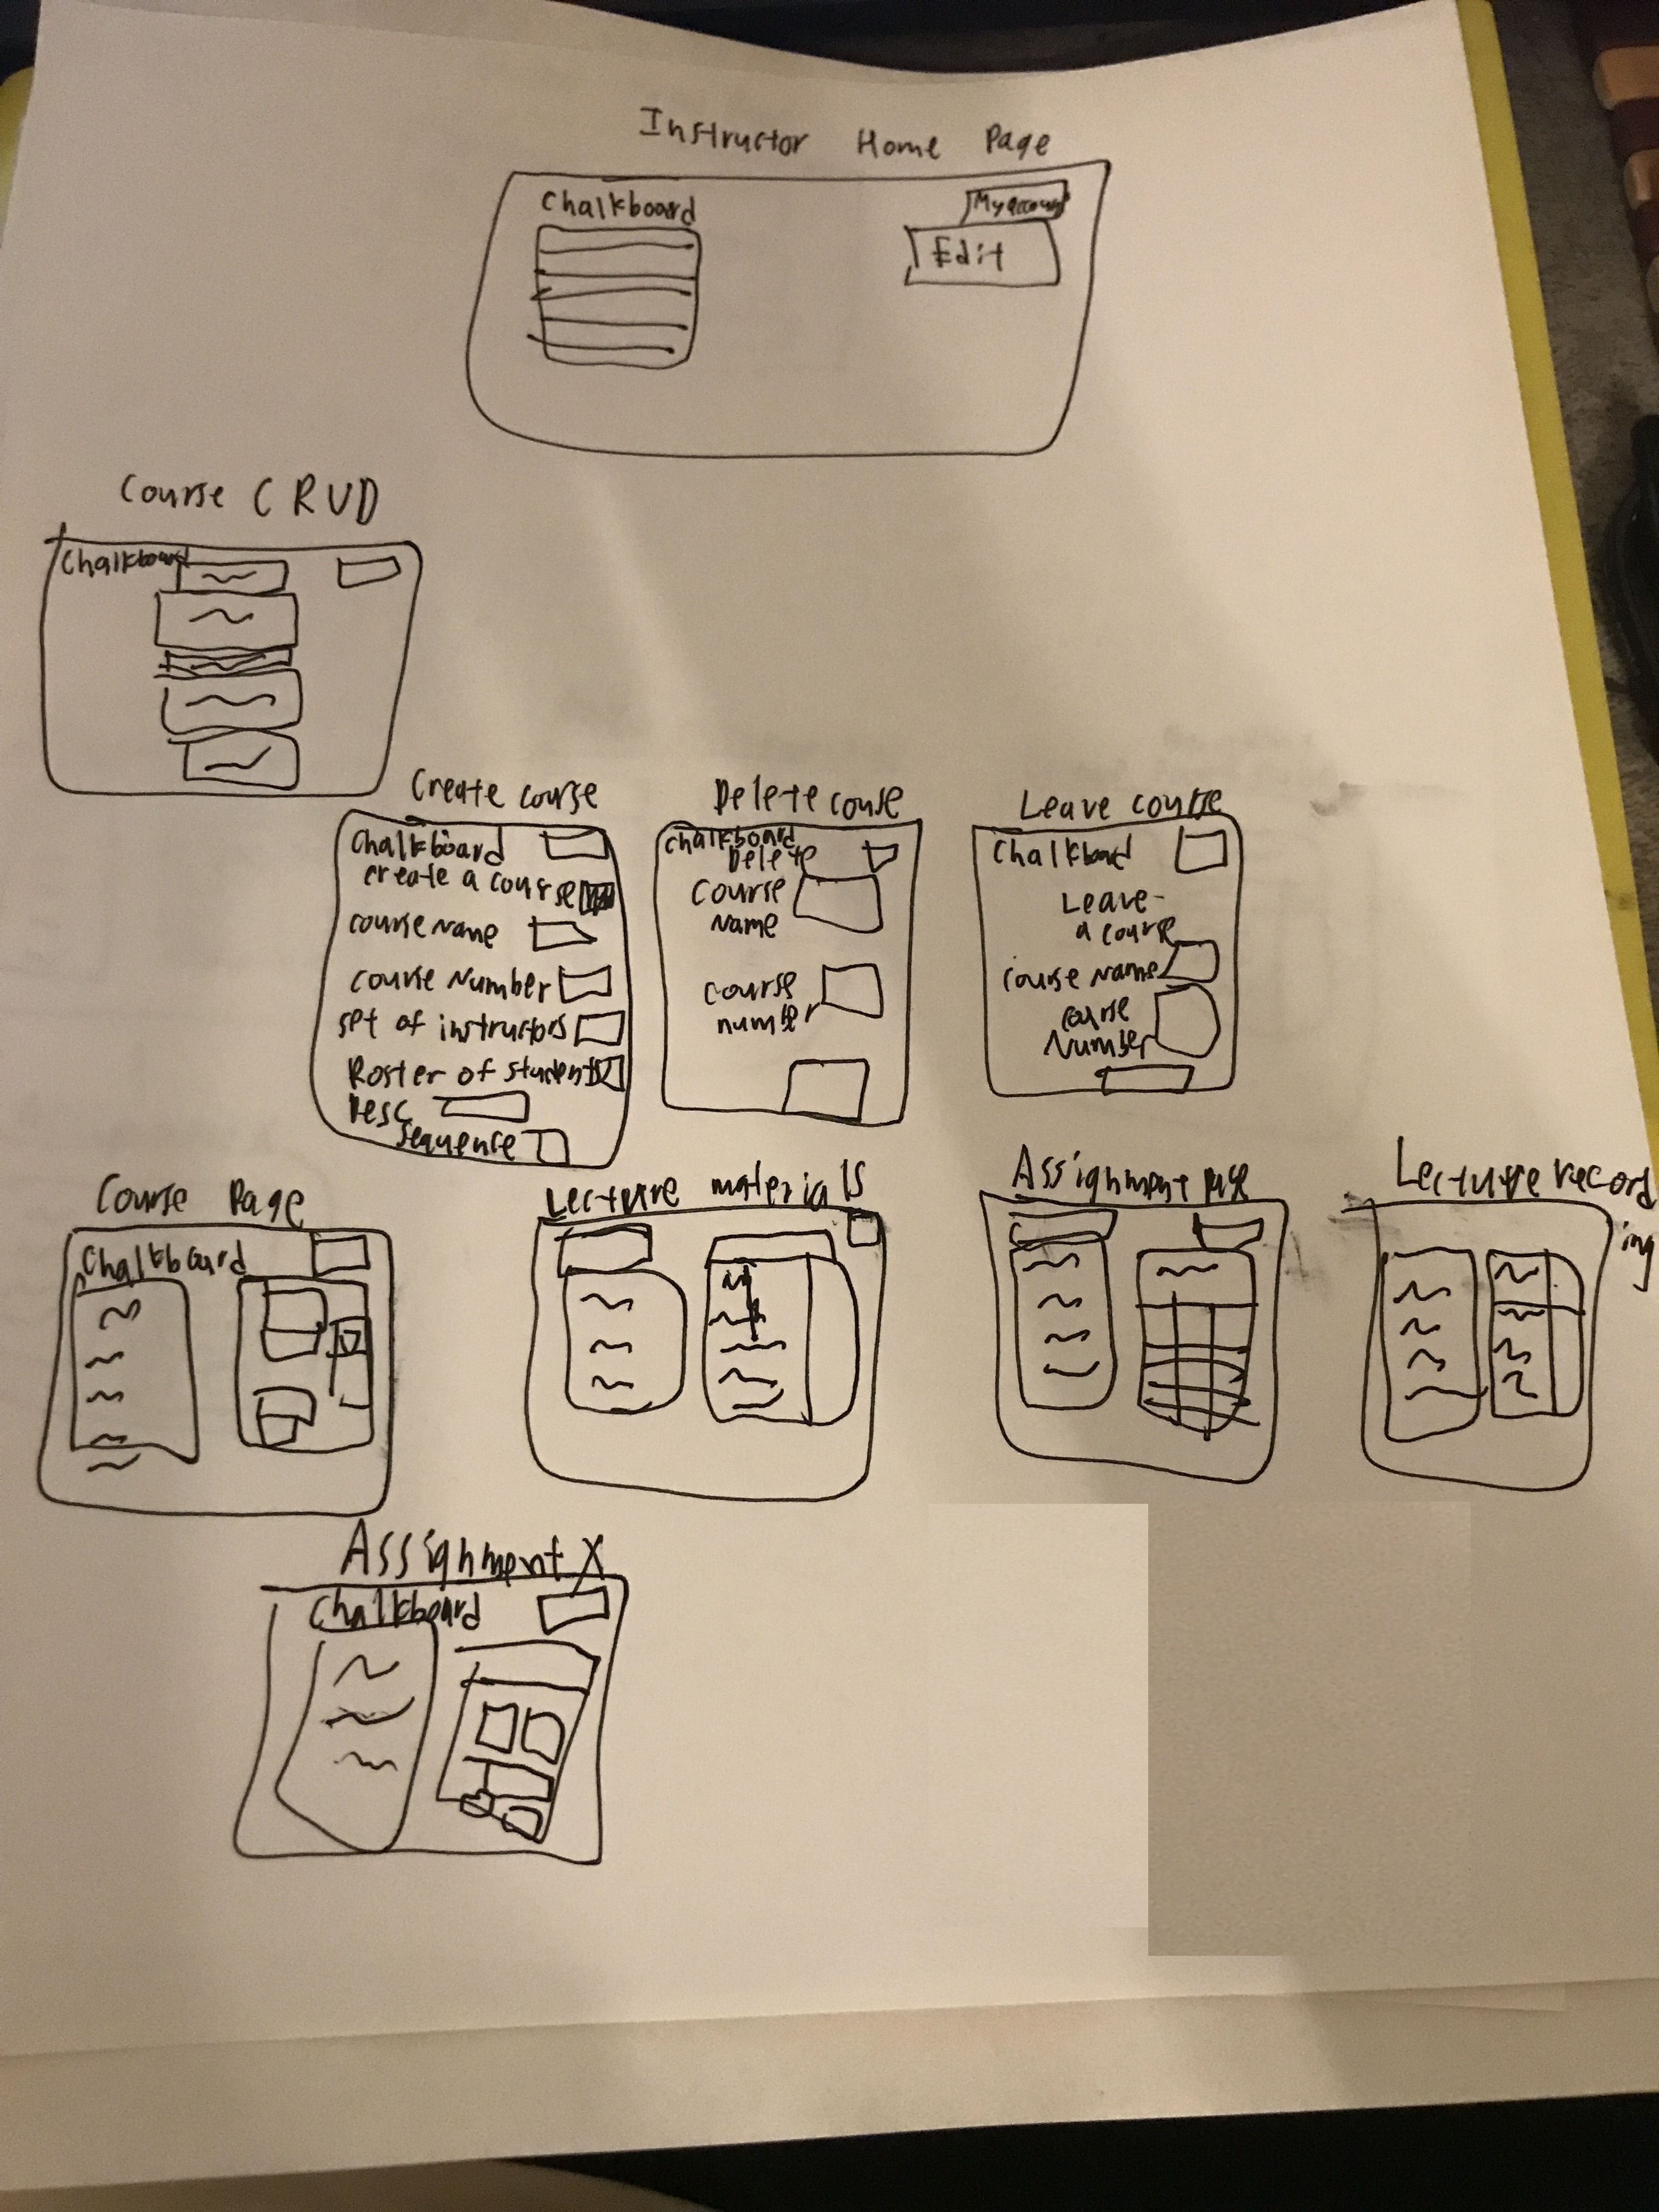 Instructor Home Page
Chalkboard
My account
Edit
Course CRUD
Chalkboard
Create course
Chalkboard
create a course
course Name
course Number
set of instructors
Roster of students
Desc
sequence
Delete couse
Chalkboard
Delete
Course
Name
course
number
Leave course
Chalkboard
Leave
a course
course Name
course
Number
Course Page
Chalkboard
Lecture materials
Assignment page
Lecture record
ing
Assignment X
Chalkboard